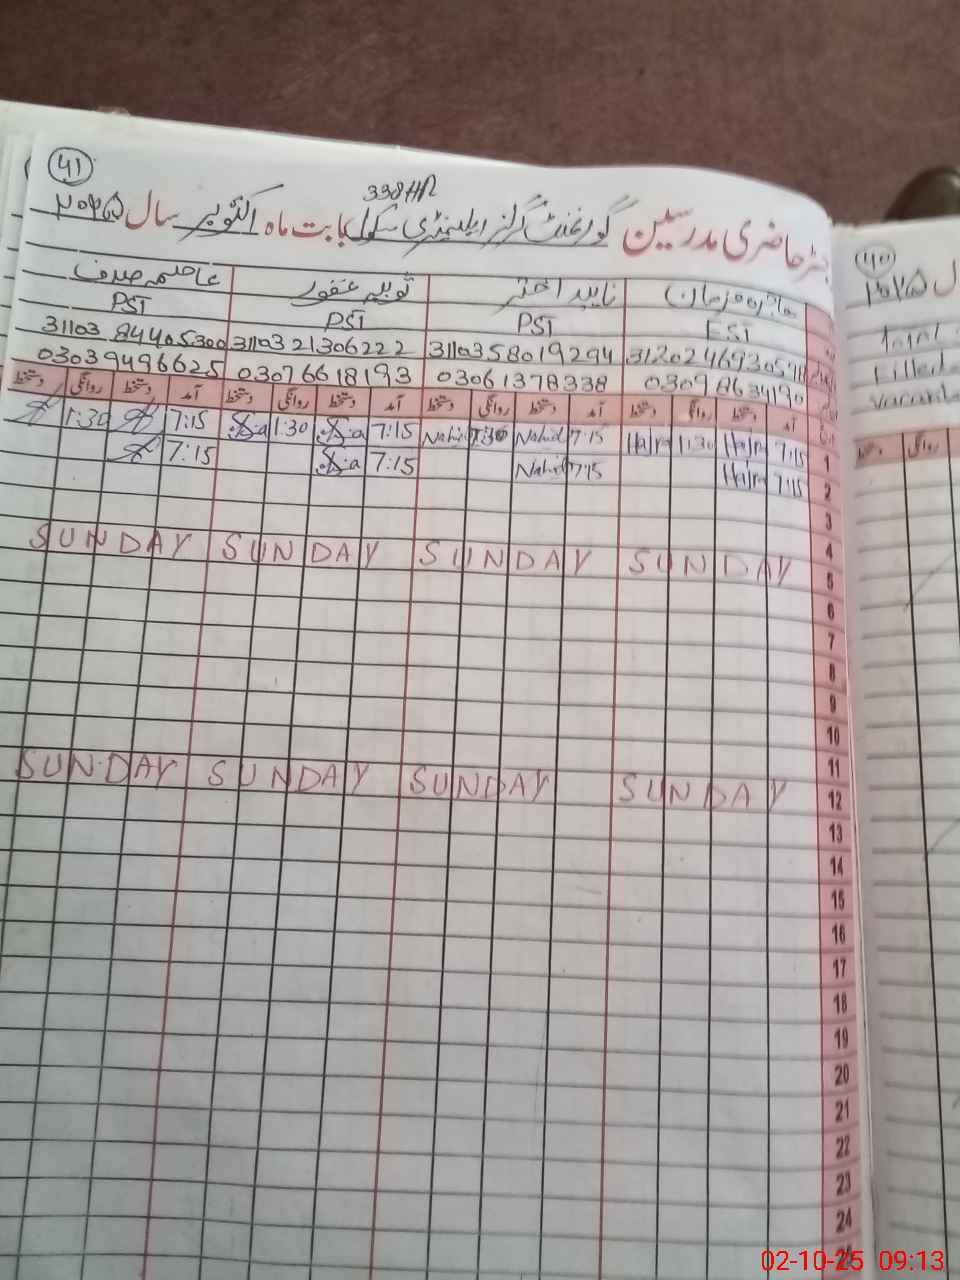 41
338HR
رجسٹر حاضری مدرسین گورنمنٹ گرلز ایلیمنٹری سکول بابت ماہ اکتوبر سال ۲۰۲۵
ہاجرہ فرمان ناہید اختر ثوبیہ غفور عاصمہ صدف
EST PST PST PST
3120246930598 3110358019294 3110321306222 3110384405300
03098634190 03061378338 03076618193 03039496625
آمد دستخط روانگی دستخط آمد دستخط روانگی دستخط آمد دستخط روانگی دستخط آمد دستخط روانگی دستخط
1 7:15 Hajra 1:30 Hajra 7:15 Nahid 1:30 Nahid 7:15 1:30 7:15 1:30
2 7:15 Hajra 7:15 Nahid 7:15 7:15
3
4
5 SUNDAY SUNDAY SUNDAY SUNDAY
6
7
8
9
10
11
12 SUNDAY SUNDAY SUNDAY SUNDAY
13
14
15
16
17
18
19
20
21
22
23
24
40
سال ۲۰۲۵
Total
Filled
Vacant
روانگی دستخط
02-10-25 09:13